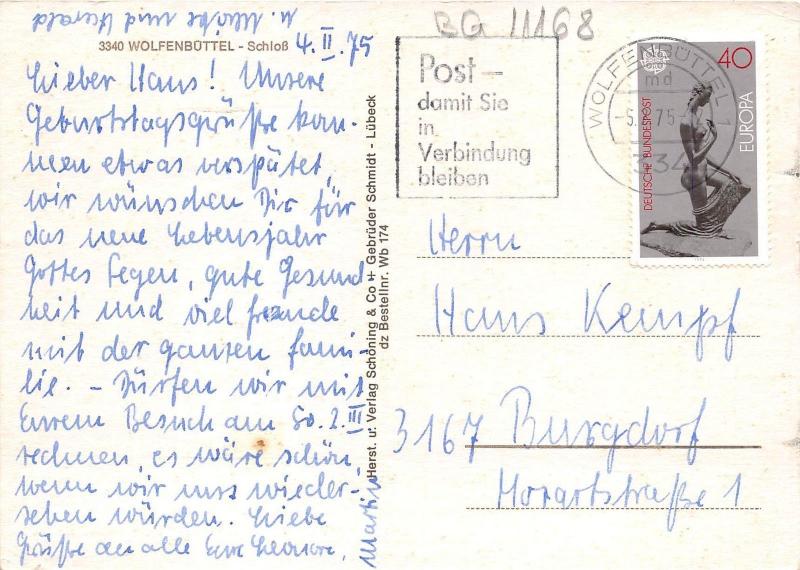 BG 11168
3340 WOLFENBÜTTEL - Schloß
4.II.75
Lieber Hans! Unsere
Geburtstagsgrüße kom-
men etwas verspätet,
wir wünschen Dir für
das neue Lebensjahr
Gottes Segen, gute Gesund
heit und viel freude
mit der ganzen fami-
lie. – Dürfen wir mit
Eurem Besuch am So. 2.III.
rechnen, es wäre schön,
wenn wir uns wieder-
sehen würden. Liebe
Grüße an alle Eure Leonore,
Martin
u. und Harald
Herst. u. Verlag Schöning & Co + Gebrüder Schmidt - Lübeck
dz Bestellnr. Wb 174
Post –
damit Sie
in
Verbindung
bleiben
WOLFENBÜTTEL 1
md
334
40
EUROPA
DEUTSCHE BUNDESPOST
Herrn
Hans Kempf
3167 Burgdorf
Mozartstraße 1